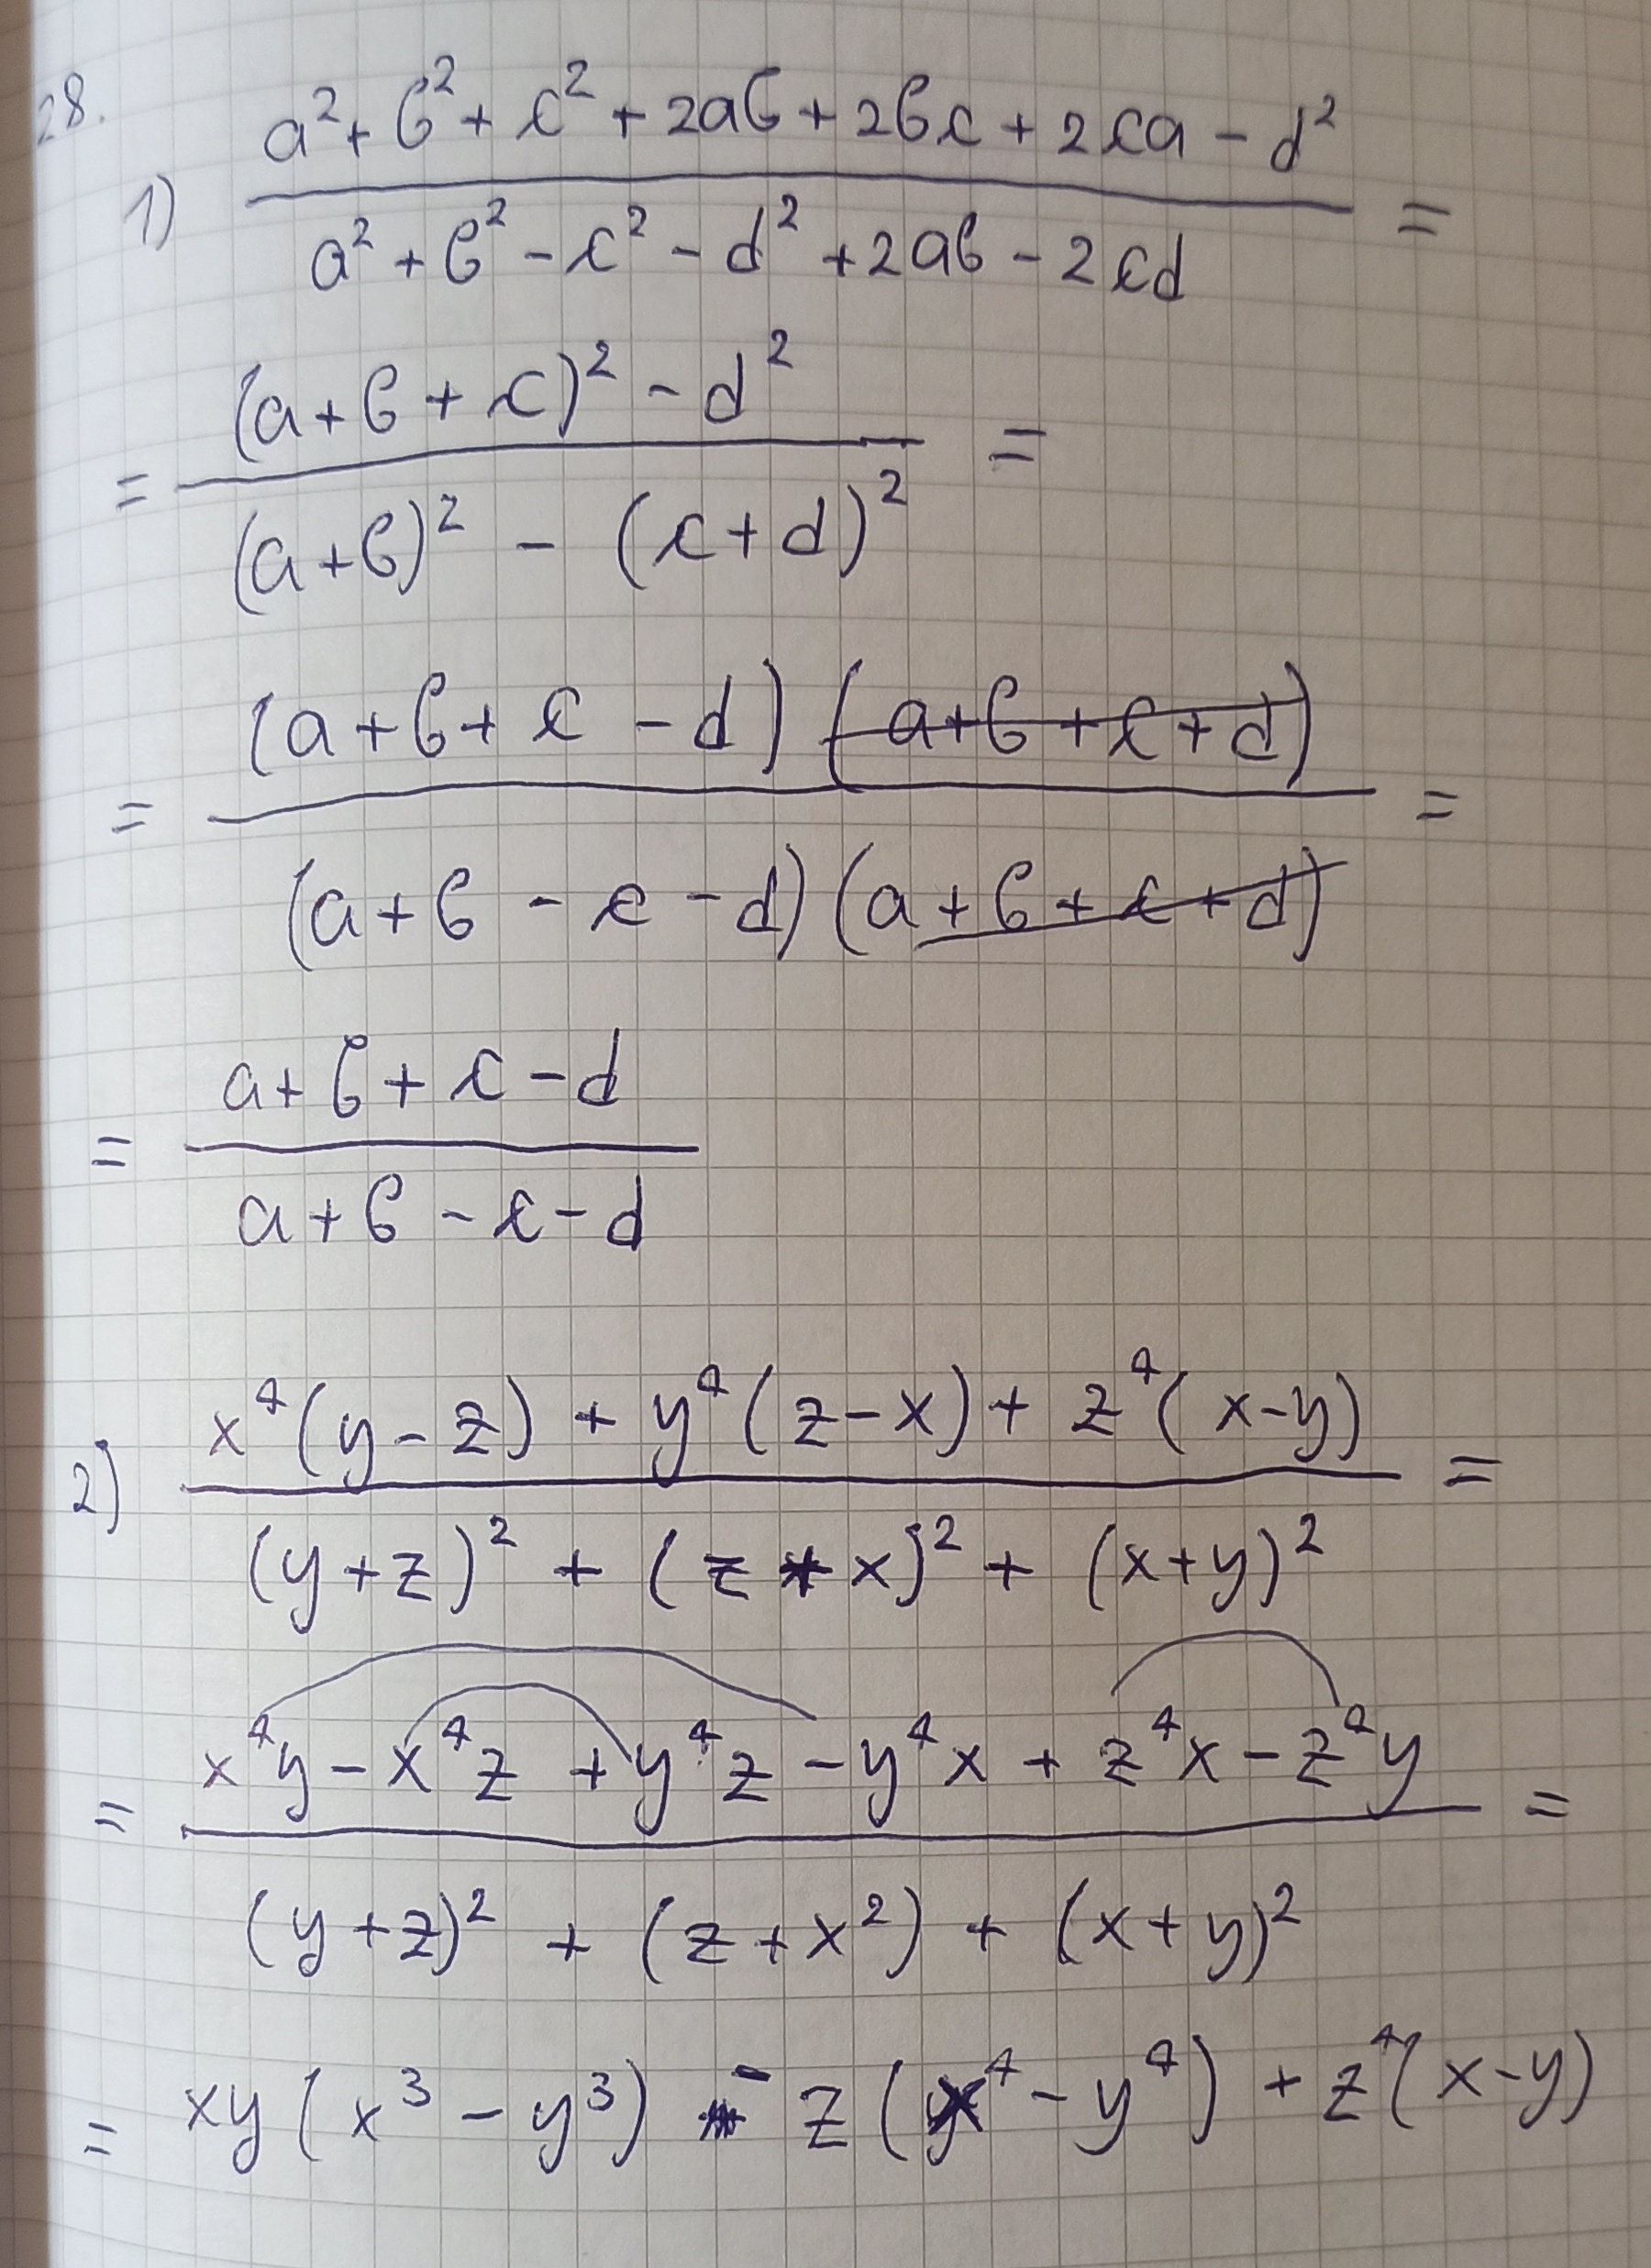 28.
1) a² + b² + c² + 2ab + 2bc + 2ca - d²
a² + b² - c² - d² + 2ab - 2cd =
(a + b + c)² - d²
= (a + b)² - (c + d)² =
(a + b + c - d) (a + b + c + d)
= (a + b - c - d) (a + b + c + d) =
a + b + c - d
= a + b - c - d
2) x⁴(y - z) + y⁴(z - x) + z⁴(x - y) =
(y + z)² + (z + x)² + (x + y)²
x⁴y - x⁴z + y⁴z - y⁴x + z⁴x - z⁴y
= (y + z)² + (z + x²) + (x + y)² =
= xy(x³ - y³) - z(x⁴ - y⁴) + z⁴(x - y)